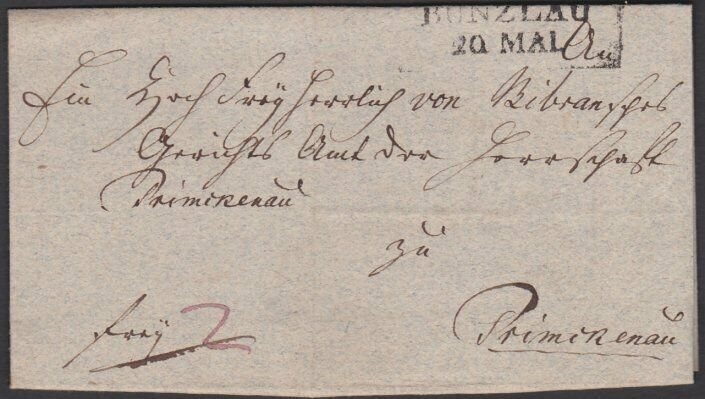 BUNZLAU
20 MAI
An
Ein Hoch Freyherrlich von Bibransches
Gerichts Amt der Herrschaft
Primckenau
zu
Primckenau
frey 2